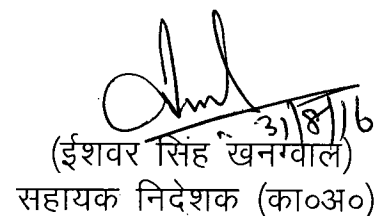 31/8/16
(ईशवर सिंह खनग्वाल)
सहायक निदेशक (का०अ०)